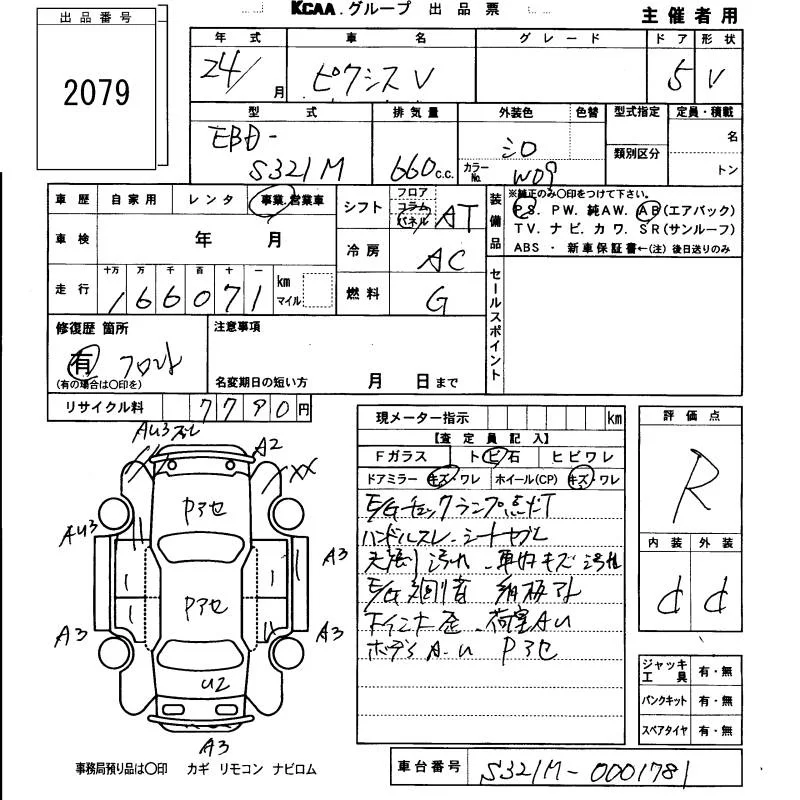 KCAA.グループ 出品票
主催者用
出品番号
2079
年式 車名 グレード ドア 形状
24/ 月 ピクシス V 5 V
型式 排気量 外装色 色替 型式指定 定員・積載
EBD- シロ 名
S321M 660 c.c. カラーNo. W09 類別区分 トン
車歴 自家用 レンタ 事業.営業車
車検 年 月
走行 十万 万 千 百 十 一
166071 km マイル
シフト フロア コラム パネル AT
冷房 AC
燃料 G
装備品 ※純正のみ〇印をつけて下さい。
PS. PW. 純AW. AB(エアバック)
TV. ナビ. カワ. SR(サンルーフ)
ABS ・ 新車保証書←(注) 後日送りのみ
セールスポイント
修復歴 箇所 注意事項
有 フロント
(有の場合は〇印を) 名変期日の短い方 月 日まで
リサイクル料 7790円
AU3 ズレ
A2
XX
Pアセ
AU3
A3
Pアセ
A3
A3
U2
A3
現メーター指示 km
【査定員記入】
Fガラス ト ビ 石 ヒビワレ
ドアミラー キズ・ワレ ホイール(CP) キズ・ワレ
E/Gチェックランプ点灯
ハンドルスレ シートヤブレ
天張り汚れ 車内キズ 汚れ
E/G
荷室AU
ボデーA.U Pアセ
評価点
R
内装 外装
d d
ジャッキ工具 有・無
パンクキット 有・無
スペアタイヤ 有・無
事務局預り品は〇印 カギ リモコン ナビロム
車台番号 S321M-0001781